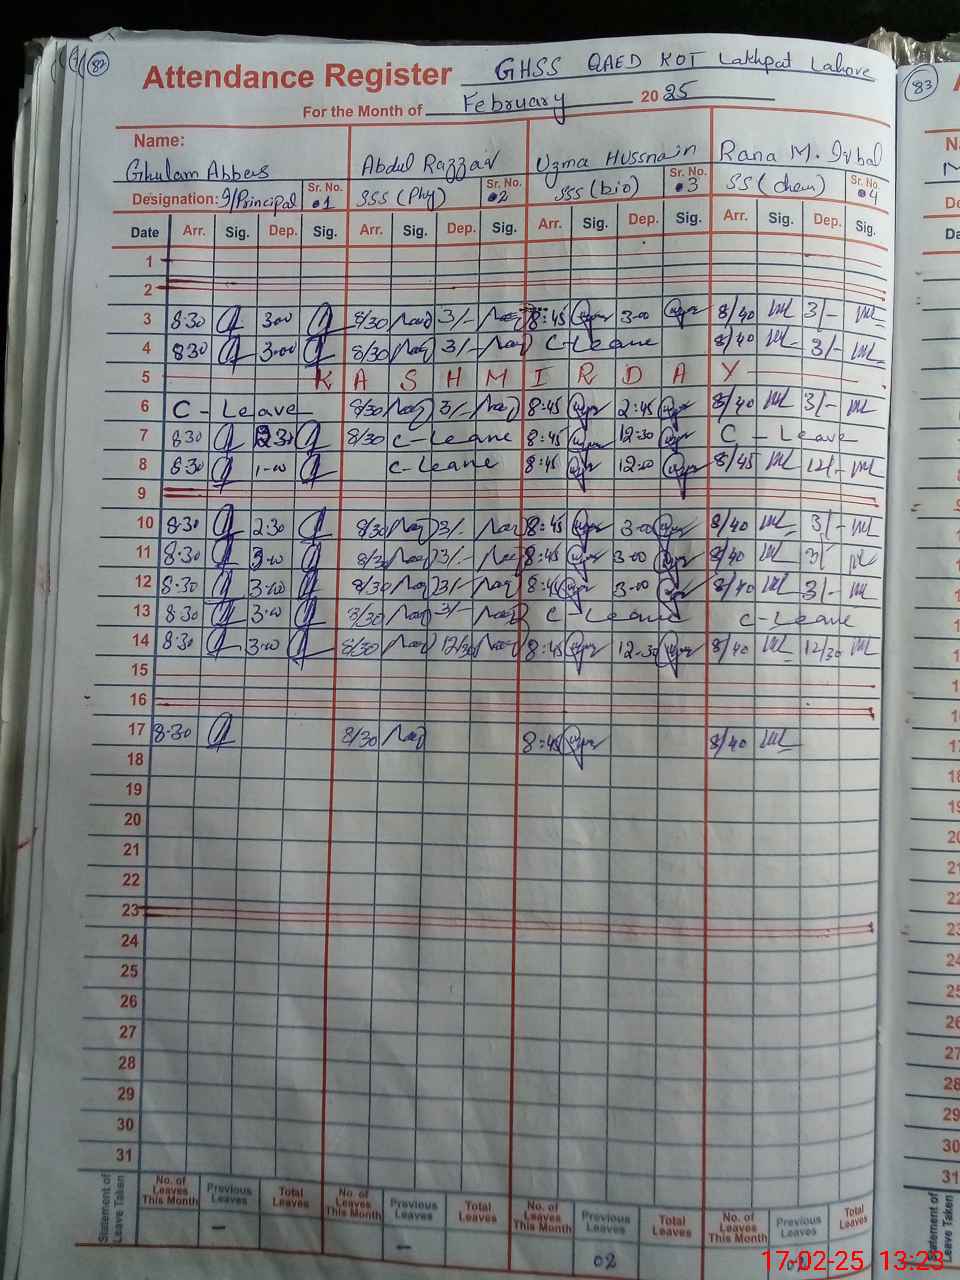 82
Attendance Register GHSS QAED KOT Lakhpat Lahore
For the Month of February 20 25
Name:
Ghulam Abbas Abdul Razzaq Uzma Hussnain Rana M. Iqbal
Designation: I/Principal Sr. No. 1 SSS (Phy) Sr. No. 2 SSS (bio) Sr. No. 3 SS (chem) Sr. No. 4
Date Arr. Sig. Dep. Sig. Arr. Sig. Dep. Sig. Arr. Sig. Dep. Sig. Arr. Sig. Dep. Sig.
1
2
3 8:30 3:00 8/30 3/- 8:45 3:00 8/40 3/-
4 8:30 3:00 8/30 3/- C-Leave 8/40 3/-
5 KASHMIR DAY
6 C-Leave 8/30 3/- 8:45 2:45 8/40 3/-
7 8:30 8/30 C-Leave 8:45 12:30 C-Leave
8 8:30 1:00 C-Leave 8:45 12:00 8/45 12/-
9
10 8:30 2:30 8/30 3/- 8:45 3:00 8/40 3/-
11 8:30 3:00 8/30 3/- 8:45 3:00 8/40 3/
12 8:30 3:00 8/30 3/- 8:45 3:00 8/40 3/-
13 8:30 3:00 8/30 3/- C-Leave C-Leave
14 8:30 3:00 8/30 12/30 8:45 12:30 8/40 12/30
15
16
17 8:30 8/30 8:45 8/40
18
19
20
21
22
23
24
25
26
27
28
29
30
31
Statement of Leave Taken
No. of Leaves This Month Previous Leaves Total Leaves No. of Leaves This Month Previous Leaves Total Leaves No. of Leaves This Month Previous Leaves Total Leaves No. of Leaves This Month Previous Leaves Total Leaves
- - 02
17-02-25 13:23
83